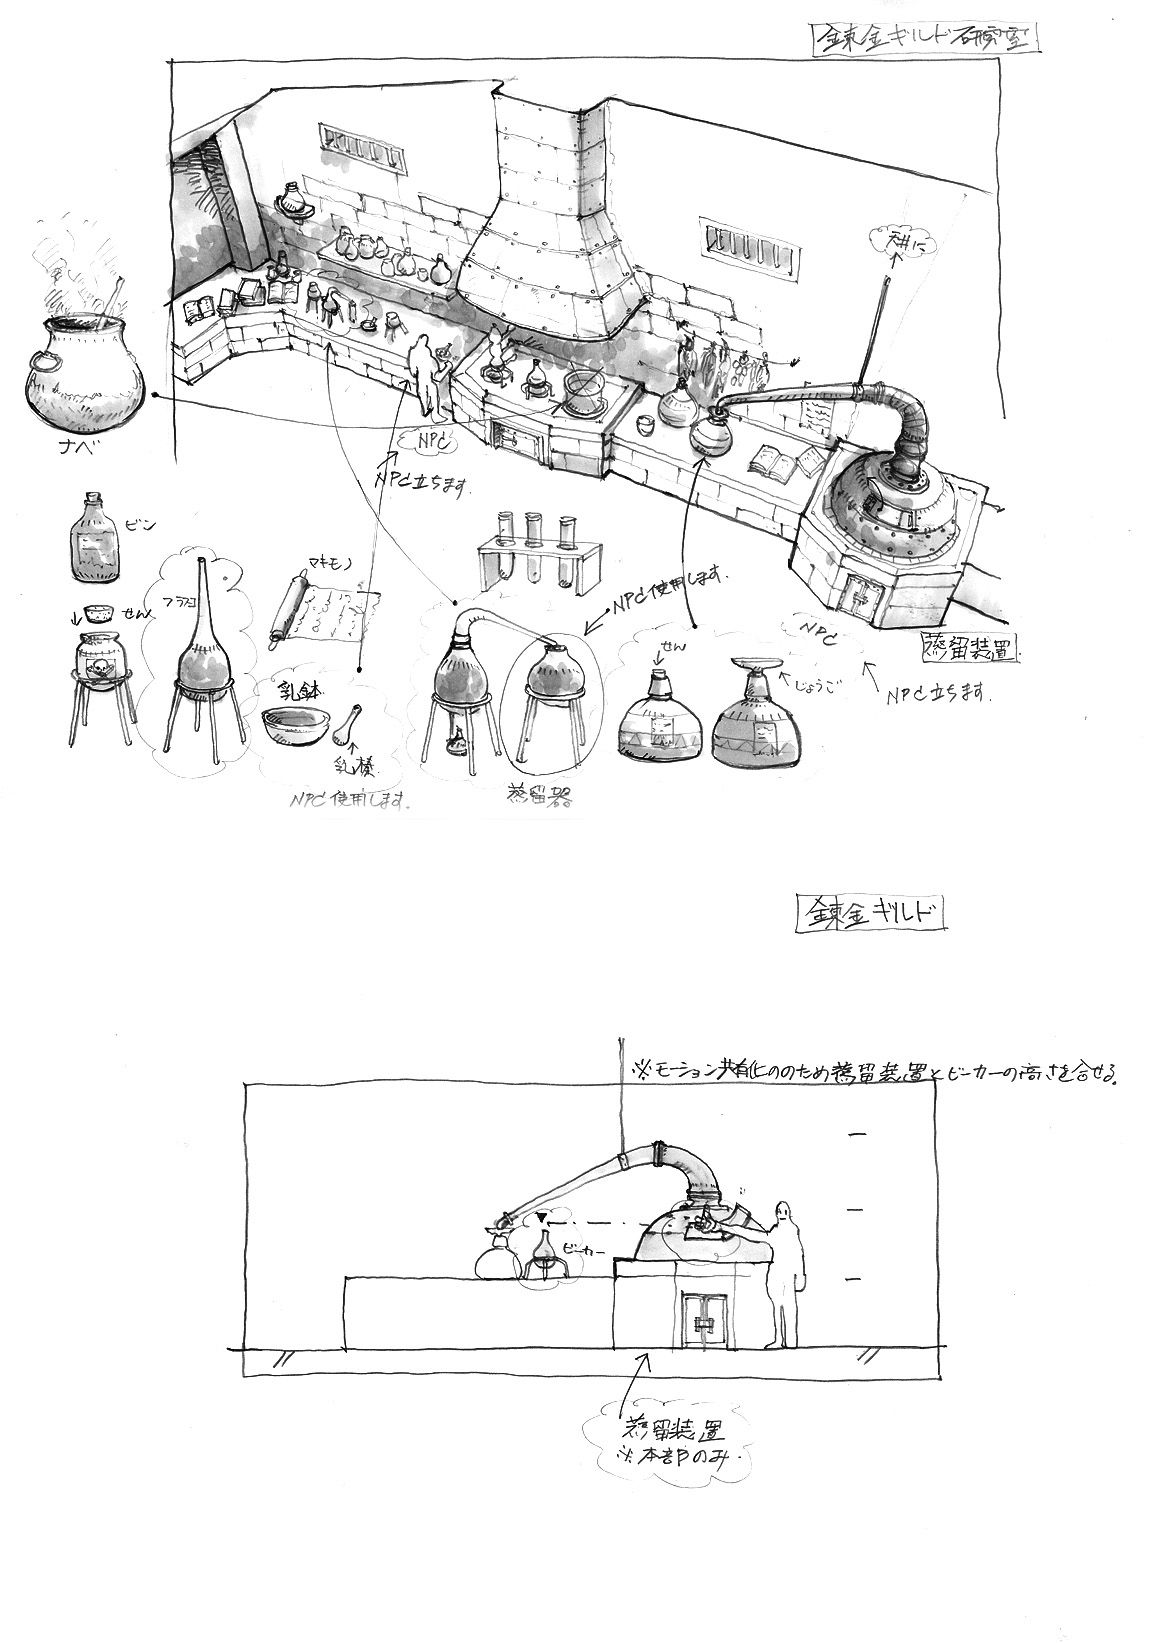 錬金ギルド研究室
天井に
ナベ
NPC
NPC立ちます.
ビン
せん
フラスコ
マキモノ
NPC使用します.
乳鉢
乳棒
NPC使用します.
蒸留器
せん
じょうご
NPC
NPC立ちます.
蒸留装置
錬金ギルド
※モーション共有化ののため蒸留装置とビーカーの高さを合せる.
ビーカー
蒸留装置
※本部のみ.